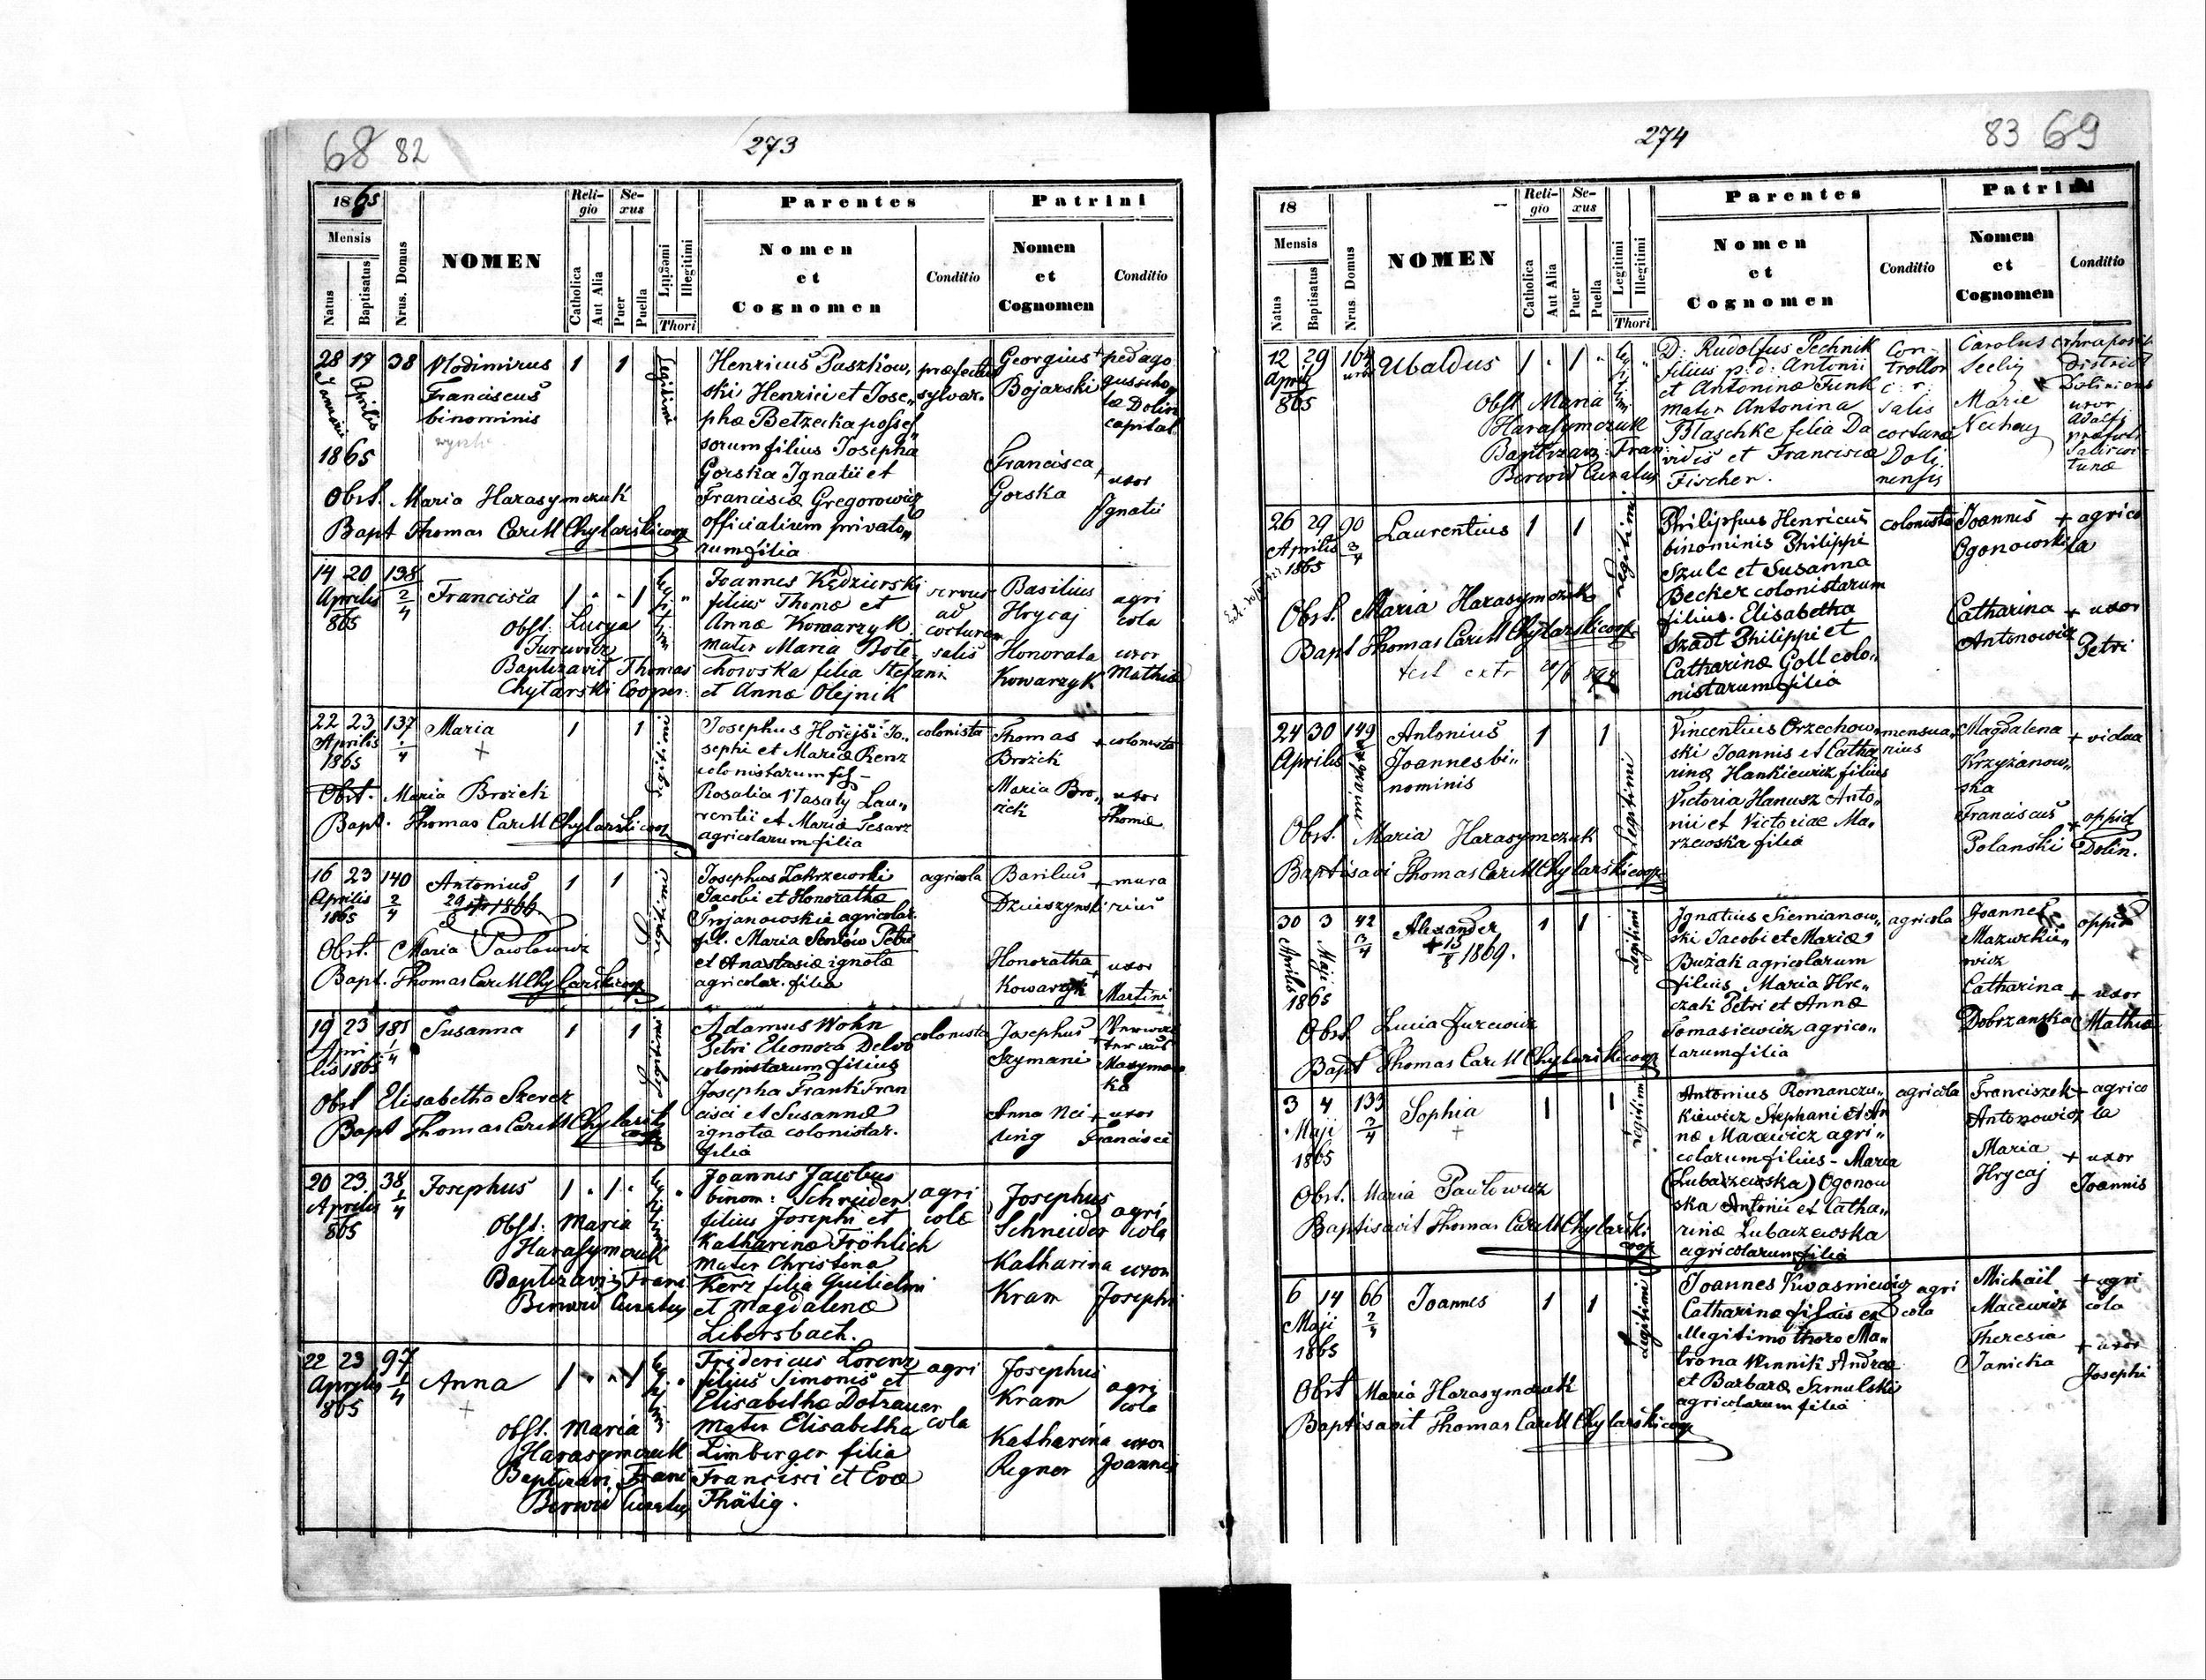 68 82
273
1865
Mensis
Natus
Baptisatus
Nrus. Domus
NOMEN
Reli-
gio
Catholica
Aut Alia
Se-
xus
Puer
Puella
Legitimi
Illegitimi
Thori
Parentes
Nomen
et
Cognomen
Conditio
Patrini
Nomen
et
Cognomen
Conditio
28 17 38 Vlodimirus 1 1
Januarii Aprilis
Franciscus
binominis
1865
Legitimi
Obst. Maria Harasymczuk
Bapt Thomas Car. M Chylarski coop
Henricus Paszkow,,
ski Henrici et Jose,,
pha Betzecka posses
sorum filius Josepha
Gorska Ignatii et
Francisca Gregorowicz
officialium privato,,
rum filia
praefectus
sylvar.
Georgius +
Bojarski
Francisca +
Gorska
pedago
gus scho
la Dolin
capital
uxor
Ignatii
14 20 138 2/4
Aprilis
865
Francisca 1 " " 1
Obst: Lucya
Jurewicz
Baptizavit Thomas
Chylarski Cooper.
Joannes Kędzierski
filius Thoma et
Anna Kowarzyk
mater Maria Bote-
chowska filia Stefani
et Anna Olejnik
servus
ad
cocturam
salis
Basilius
Hrycaj
Honorata
Kowarzyk
agri
cola
uxor
Mathia
22 23 137 1/4
Aprilis
1865
Maria 1 1
+
legitimi
Obst. Maria Brozek
Bapt. Thomas Car. M Chylarski coop
Josephus Hořejši Jo,,
sephi et Maria Renz
colonistarum fil-
Rosalia Vlasaty Lau,,
rentii et Maria Tesarz
agricolarum filia
colonista
Thomas +
Brozek
Maria Bro,,
zek
colonista
uxor
Thoma
16 23 140 2/4
Aprilis
1865
Antonius 1 1
1866
Legitimi
Obst. Maria Pawlowicz
Bapt. Thomas Car. M Chylarski coop
Josephus Zakrzewski
Jacobi et Honoratha
Trojanowskie agricolar.
fil. Maria Seńków Petri
et Anastasia ignota
agricolar. filia
agricola
Basilius +
Dzwiszynski
Honoratha +
Kowarzyk
mura
rius
uxor
Martini
19 23 181 1/4
Apri
lis 1865
Susanna 1 1
Legitimi
Obst Elisabetha Szercz
Bapt Thomas Car. M Chylarski
coop
Adamus Wohn
Petri Eleonora Delvo
colonistarum filius
Josepha Frank Fran
cisci et Susanna
ignota colonistar.
filia
colonista
Josephus +
Szymani
Anna Nei +
ling
uxor
Francisci
20 23 38 1/4
Aprilis
865
Josephus 1 " 1 "
Obst: Maria
Harasymczuk
Baptizavit Franc
Berwid Curatus
Joannes Jacobus
binom: Schneider
filius Josephi et
Katharina Fröhlich
Mater Christina
Kerz filia Guilielmi
et Magdalena
Libersbach.
agri
cola
Josephus
Schneider
Katharina
Kram
agri
cola
uxor
Josephi
22 23 97 1/4
Aprilis
865
Anna 1 " " 1 "
+
Obst. Maria
Harasymczuk
Baptizavi. Franc
Berwid Curatus
Fridericus Lorenz
filius Simonis et
Elisabetha Dotrauer
Mater Elisabetha
Limberger filia
Francisci et Eva
Thätig.
agri
cola
Josephus
Kram
Katharina
Regner
agri
cola
uxor
Joannes
274
83 69
18
Mensis
Natus
Baptisatus
Nrus. Domus
NOMEN
Reli-
gio
Catholica
Aut Alia
Se-
xus
Puer
Puella
Legitimi
Illegitimi
Thori
Parentes
Nomen
et
Cognomen
Conditio
Patrini
Nomen
et
Cognomen
Conditio
12 29 164
April
865
Ubaldus 1 " 1 "
Obst Maria
Harasymczuk
Baptizavi: Fran
Berwid Curatus
D. Rudolfus Technik
filius p: d: Antonii
et Antonina Funk
mater Antonina
Blaschke filia Da
vidis et Francisca
Fischer.
Con
trollor
c: r:
salis
coctura
Doli
nensis
Carolus
Seeling
Marie
district
Dolinens
uxor
Adalfi
praefecti
Salis coc
tura
26 29 90 3/4
Aprilis
1865
Laurentius 1 1
Legitimi
Obst. Maria Harasymczuk
Bapt Thomas Car. M Chylarski coop
test extr
Philippus Henricus
binominis Philippi
Szulc et Susanna
Becker colonistarum
filius. Elisabetha
Szadt Philippi et
Catharina Goll colo,,
nistarum filia
colonista
Joannes +
Ogonowski
Catharina +
Antonowicz
agrico
la
uxor
Petri
24 30 149
Aprilis
Antonius 1 1
Joannes bi,,
nominis
Legitimi
Obst. Maria Harasymczuk
Baptisavi Thomas Car. M Chylarski coop
Vincentius Orzechow,,
ski Joannis et Catha
rina Hankiewicz filius
Victoria Hanusz Anto,,
nii et Victoriae Ma,,
rzewska filia
mensua,,
rius
Magdalena +
Krzyżanow,,
ska
Franciscus +
Polanski
vidua
oppid
Dolin.
30 3 42 3/4
Aprilis Maji
1865
Alexander 1 1
+ 13/8 1869.
Legitimi
Obst Lucia Jurewicz
Bapt Thomas Car. M Chylarski coop
Ignatius Siemianow,,
ski Jacobi et Maria
Buzak agricolarum
filius, Maria Hre,,
czak Petri et Anna
Tomasiewicz agrico,,
larum filia
agricola
Joannes
Mazurkie,,
wicz
Catharina +
Dobrzanska
oppid
uxor
Mathia
3 4 133 2/4
Maji
1865
Sophia 1 1
+
legitimi
Obst. Maria Pawlowicz
Baptisavit Thomas Car. M Chylarski
coop
Antonius Romanczu,,
kiewicz Stephani et An
na Macewicz agri,,
colarum filius - Maria
(Lubaczewska) Ogonow
ska Antonii et Catha,,
rina Lubaczewska
agricolarum filia
agricola
Franciszek +
Antonowicz
Maria +
Hrycaj
agrico
la
uxor
Joannis
6 14 66 2/4
Maji
1865
Joannes 1 1
Legitimi
Obst Maria Harasymczuk
Baptisavit Thomas Car. M Chylarski coop
Joannes Kwasniewicz
Catharina filius ex
illegitimo thoro Ma,,
trona Winnik Andrea
et Barbara Szmulski
agricolarum filia
agri
cola
Michail +
Macewicz
Theresia +
Janicka
agri
cola
uxor
Josephi